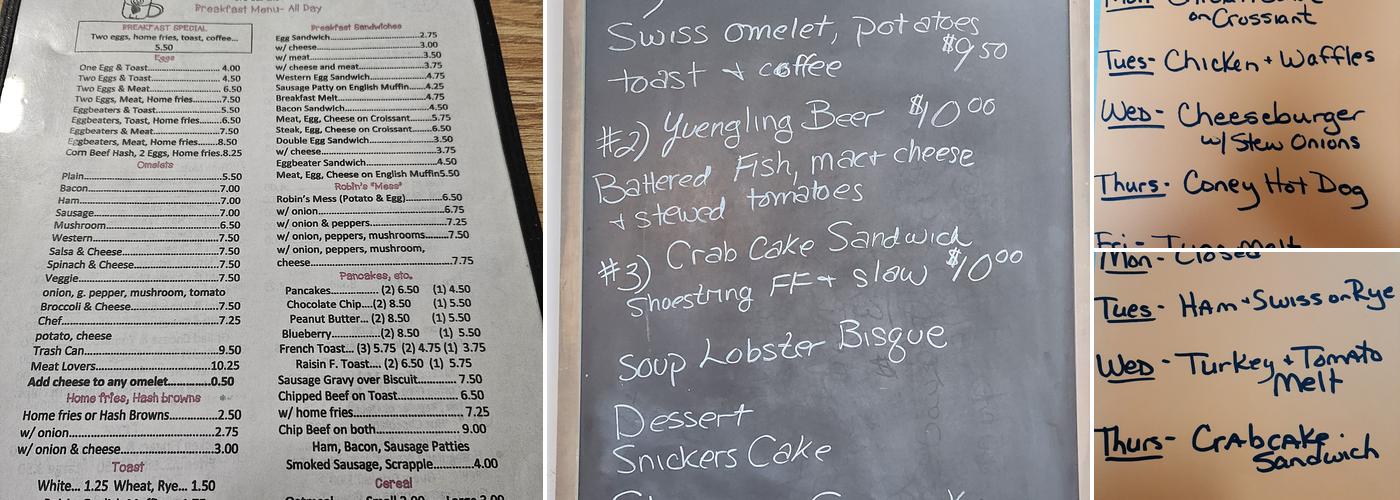 Breakfast Menu- All Day
BREAKFAST SPECIAL
Two eggs, home fries, toast, coffee...
5.50
Eggs
One Egg & Toast 4.00
Two Eggs & Toast 4.50
Two Eggs & Meat 6.50
Two Eggs, Meat, Home fries 7.50
Eggbeaters & Toast 5.50
Eggbeaters, Toast, Home fries 6.50
Eggbeaters & Meat 7.50
Eggbeaters, Meat, Home fries 8.50
Corn Beef Hash, 2 Eggs, Home fries.8.25
Omelets
Plain 5.50
Bacon 7.00
Ham 7.00
Sausage 7.00
Mushroom 6.50
Western 7.50
Salsa & Cheese 7.50
Spinach & Cheese 7.50
Veggie 7.50
onion, g. pepper, mushroom, tomato
Broccoli & Cheese 7.50
Chef 7.25
potato, cheese
Trash Can 9.50
Meat Lovers 10.25
Add cheese to any omelet 0.50
Home fries, Hash browns
Home fries or Hash Browns 2.50
w/ onion 2.75
w/ onion & cheese 3.00
Toast
White... 1.25 Wheat, Rye... 1.50
Breakfast Sandwiches
Egg Sandwich 2.75
w/ cheese 3.00
w/ meat 3.50
w/ cheese and meat 3.75
Western Egg Sandwich 4.75
Sausage Patty on English Muffin 4.25
Breakfast Melt 4.75
Bacon Sandwich 4.50
Meat, Egg, Cheese on Croissant 5.75
Steak, Egg, Cheese on Croissant 6.50
Double Egg Sandwich 3.50
w/ cheese 3.75
Eggbeater Sandwich 4.50
Meat, Egg, Cheese on English Muffin5.50
Robin's "Mess"
Robin's Mess (Potato & Egg) 6.50
w/ onion 6.75
w/ onion & peppers 7.25
w/ onion, peppers, mushrooms 7.50
w/ onion, peppers, mushroom,
cheese 7.75
Pancakes, etc.
Pancakes (2) 6.50 (1) 4.50
Chocolate Chip....(2) 8.50 (1) 5.50
Peanut Butter... (2) 8.50 (1) 5.50
Blueberry (2) 8.50 (1) 5.50
French Toast... (3) 5.75 (2) 4.75 (1) 3.75
Raisin F. Toast.... (2) 6.50 (1) 5.75
Sausage Gravy over Biscuit 7.50
Chipped Beef on Toast 6.50
w/ home fries 7.25
Chip Beef on both 9.00
Ham, Bacon, Sausage Patties
Smoked Sausage, Scrapple 4.00
Cereal
Swiss omelet, potatoes
toast + coffee $9 50
#2) Yuengling Beer $10 00
Battered Fish, mac + cheese
+ stewed tomatoes
#3) Crab Cake Sandwich
Shoestring FF + slaw $10 00
Soup Lobster Bisque
Dessert
Snickers Cake
on Crossiant
Tues- Chicken + Waffles
Wed- Cheeseburger
w/ Stew Onions
Thurs- Coney Hot Dog
Fri- Tuna Melt
Mon- Closed
Tues- Ham + Swiss on Rye
Wed- Turkey + Tomato
Melt
Thurs- Crabcake
Sandwich